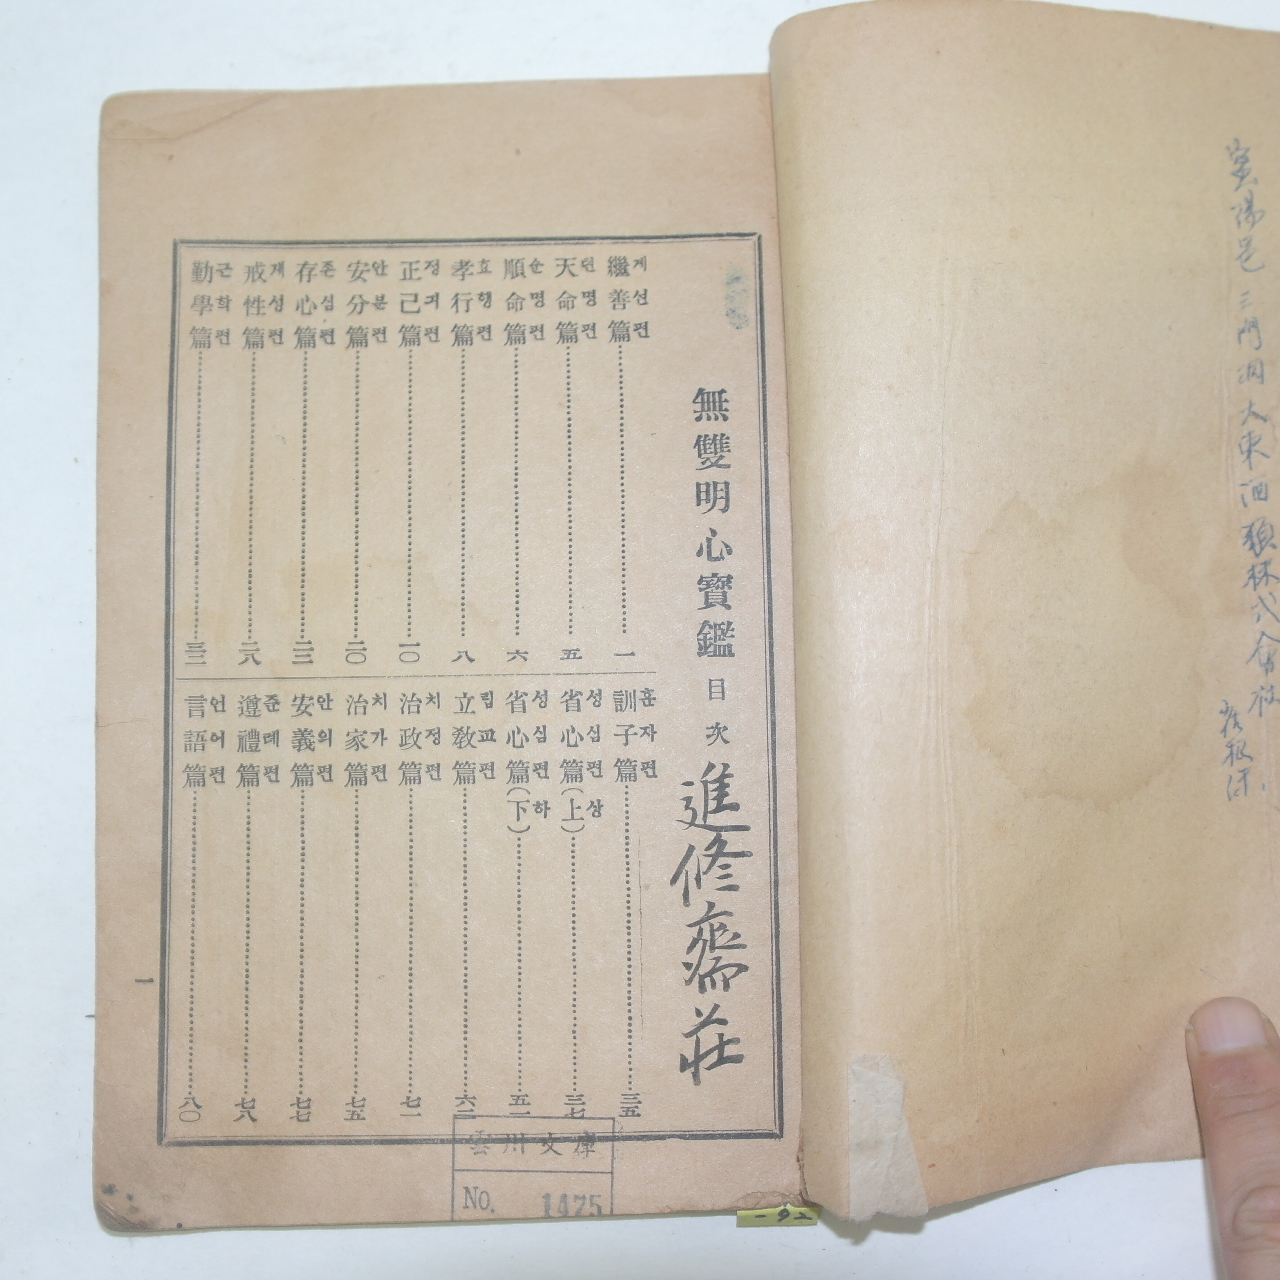 密陽邑 三門洞 大東酒類株式會社
無雙明心寶鑑 目次
進修齋莊
繼善篇 계선편 一
天命篇 텬명편 五
順命篇 슌명편 六
孝行篇 효행편 八
正己篇 정긔편 一〇
安分篇 안분편 二〇
存心篇 존심편 二三
戒性篇 계성편 二八
勤學篇 근학편 三二
訓子篇 훈자편 三五
省心篇(上) 성심편 상 三七
省心篇(下) 성심편 하 五一
立敎篇 립교편 六二
治政篇 치정편 七一
治家篇 치가편 七五
安義篇 안의편 七七
遵禮篇 준례편 七八
言語篇 언어편 八〇
一
雲川文庫
No. 1475
-92